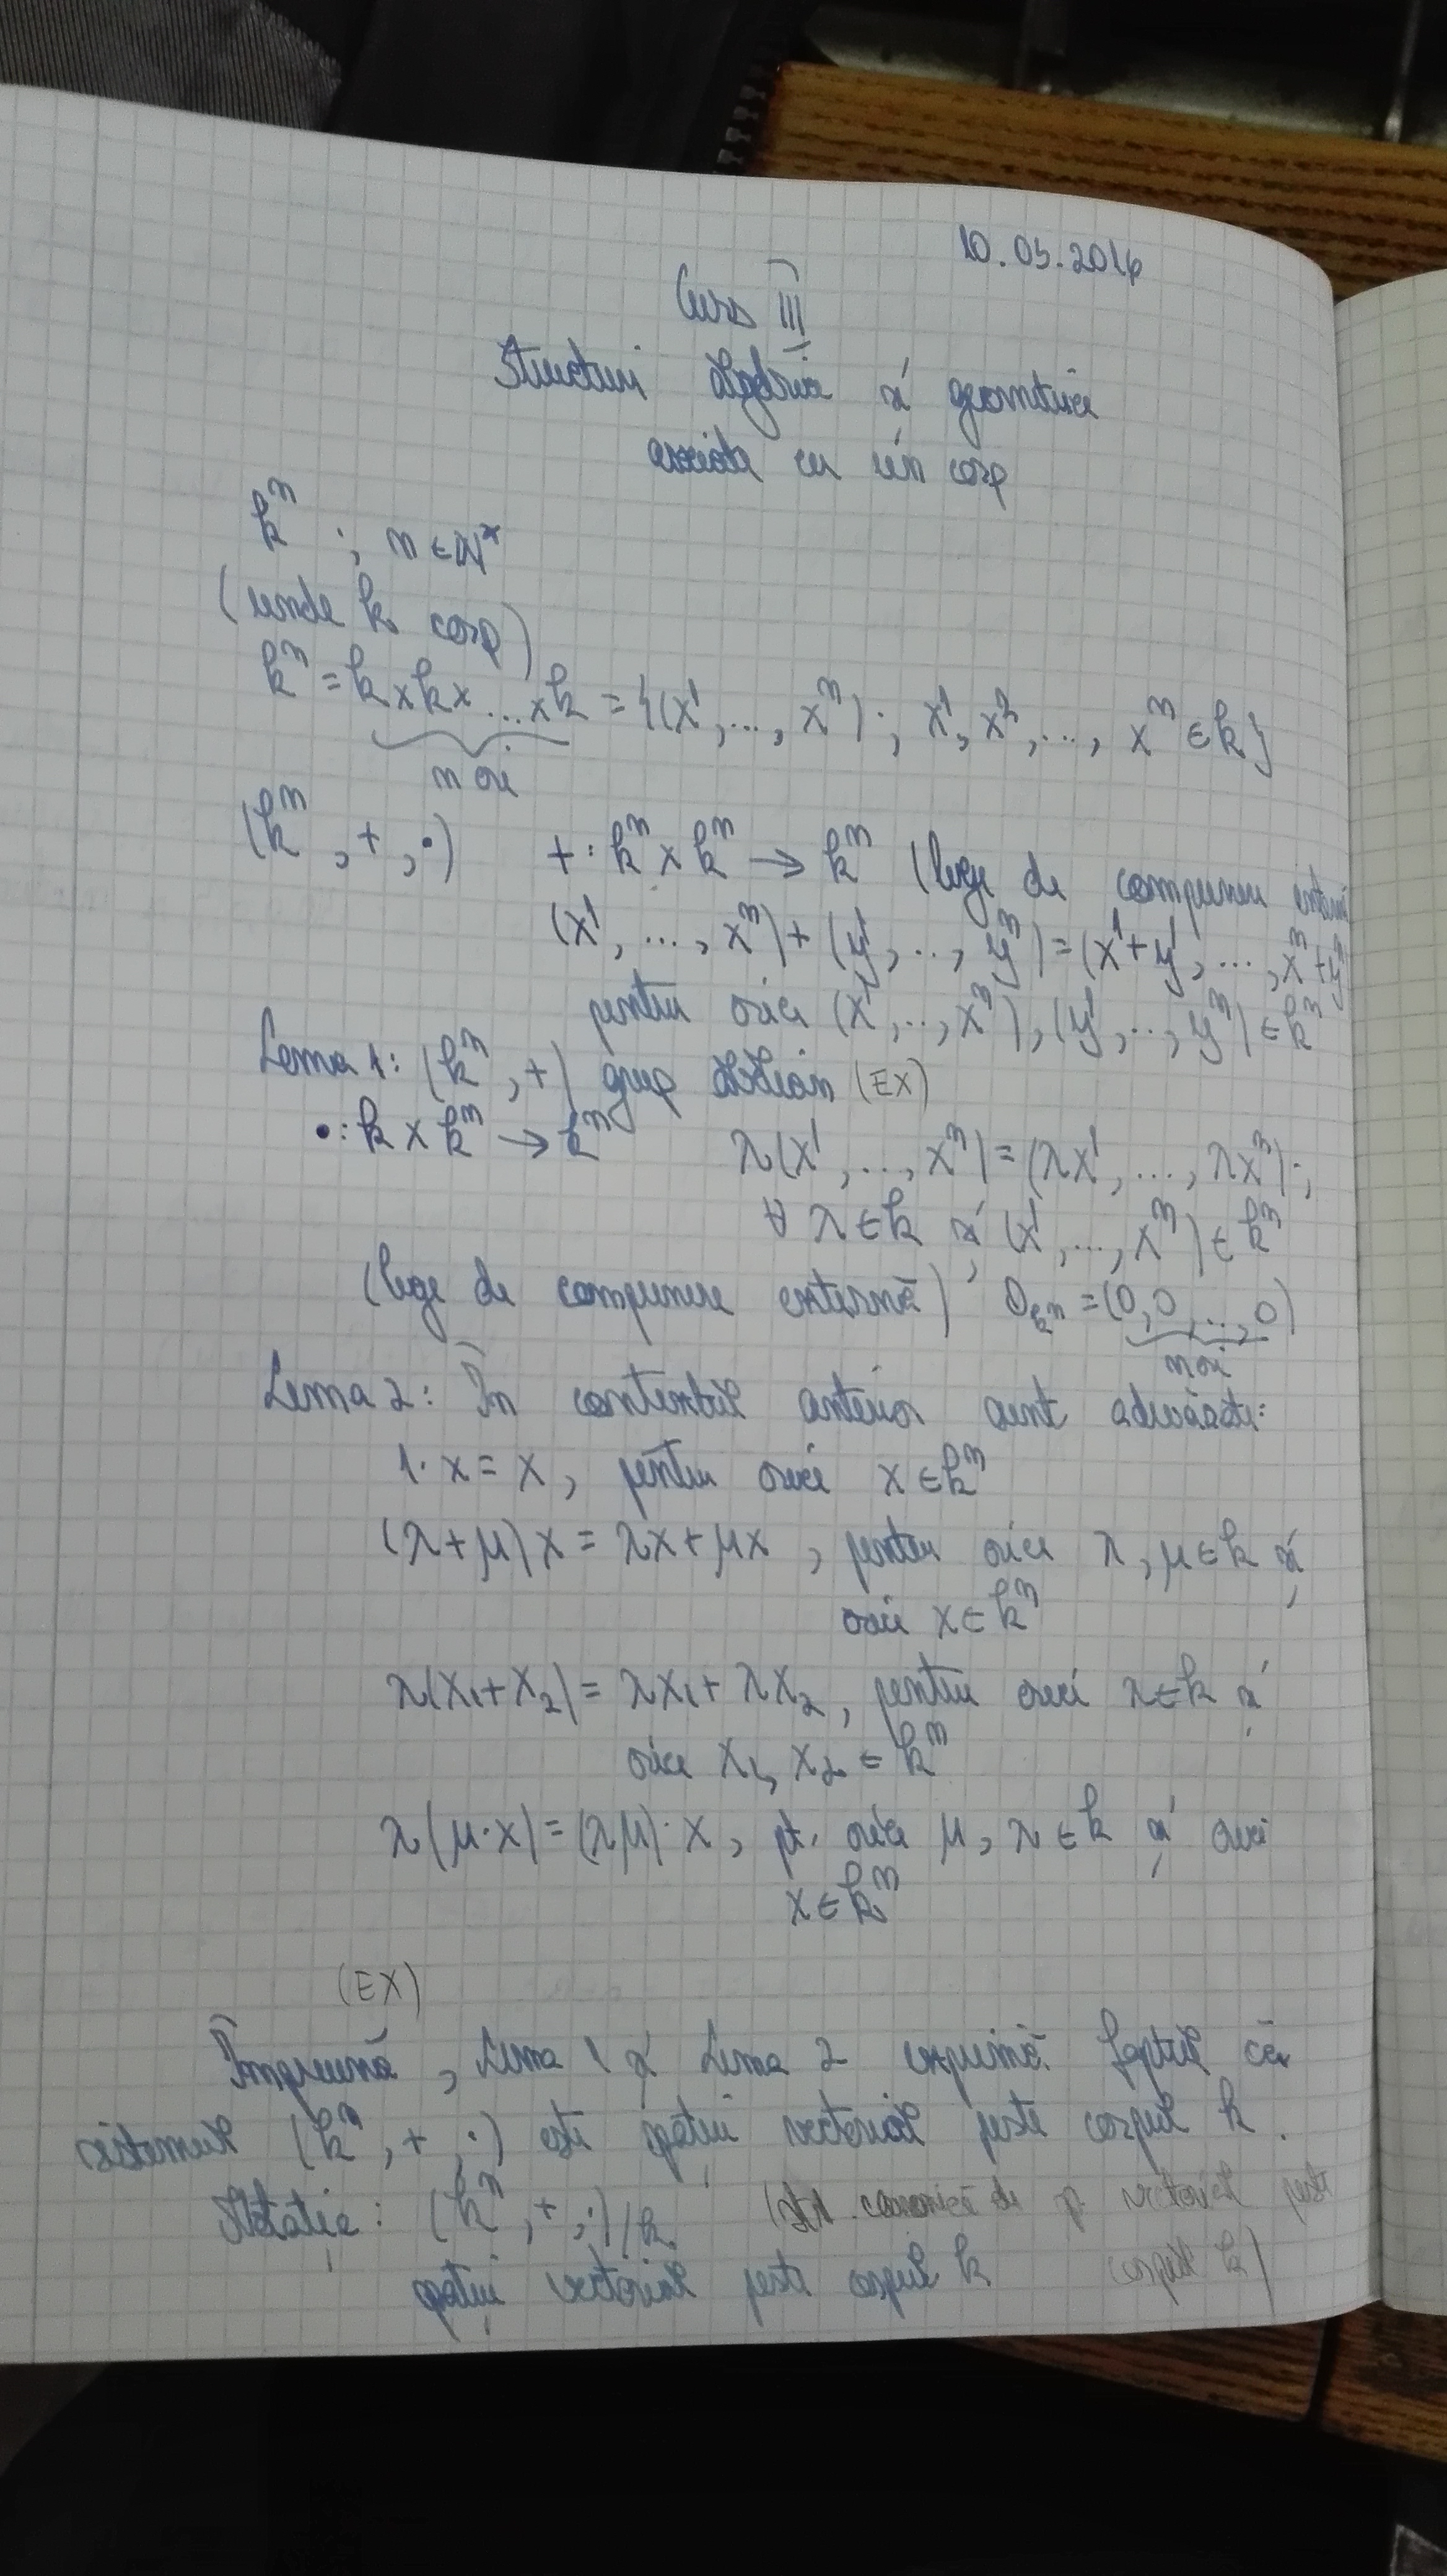 10.03.2016
Curs III
Structuri algebrice și geometrice
asociate cu un corp
kⁿ ; n ∈ ℕ*
(unde k corp)
kⁿ = k × k × ... × k = {(x¹, ..., xⁿ) ; x¹, x², ..., xⁿ ∈ k}
n ori
(kⁿ, +, ·) + : kⁿ × kⁿ → kⁿ (lege de compunere internă
(x¹, ..., xⁿ) + (y¹, ..., yⁿ) = (x¹ + y¹, ..., xⁿ + yⁿ
pentru orice (x¹, ..., xⁿ), (y¹, ..., yⁿ) ∈ kⁿ
Lema 1: (kⁿ, +) grup abelian (EX)
• : k × kⁿ → kⁿ λ(x¹, ..., xⁿ) = (λx¹, ..., λxⁿ) ;
∀ λ ∈ k și (x¹, ..., xⁿ) ∈ kⁿ
(lege de compunere externă) 0_kⁿ = (0, 0, ..., 0)
n ori
Lema 2: În contextul anterior sunt adevărate:
1 · x = x, pentru orice x ∈ kⁿ
(λ + μ) x = λx + μx, pentru orice λ, μ ∈ k și
orice x ∈ kⁿ
λ(x₁ + x₂) = λx₁ + λx₂, pentru orice λ ∈ k și
orice x₁, x₂ ∈ kⁿ
λ(μ · x) = (λμ) · x, pt. orice μ, λ ∈ k și orice
x ∈ kⁿ
(EX)
Împreună, Lema 1 și Lema 2 exprimă faptul că
sistemul (kⁿ, +, ·) este spațiu vectorial peste corpul k.
Notație: (kⁿ, +, ·)/k (str. canonică de sp. vectorial peste
spațiu vectorial peste corpul k corpul k)